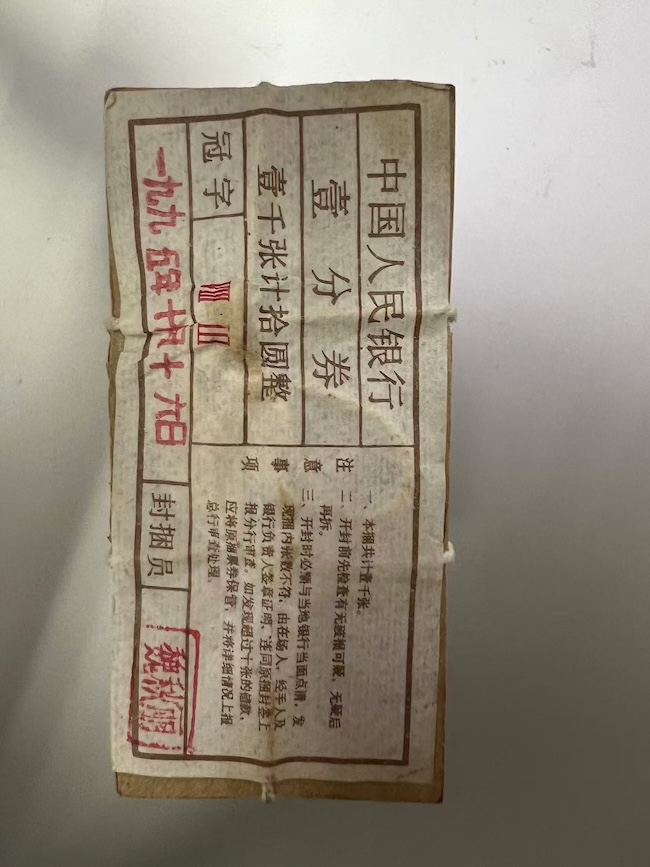 中国人民银行
壹分券
壹千张计拾圆整
冠字 Ⅷ Ⅲ
一九九五年十月十六日
封捆员 魏秋明
注意事项
一、本捆共计壹千张。
二、开封前先检查有无破损可疑，无疑后
再拆。
三、开封时必须与当地银行当面点清，发
现捆内张数不符，由在场人、经手人及
银行负责人签章证明，连同原捆封签上
报分行审查。如发现超过十张的错款，
应将原捆票券保管，并将详细情况上报
总行审查处理。